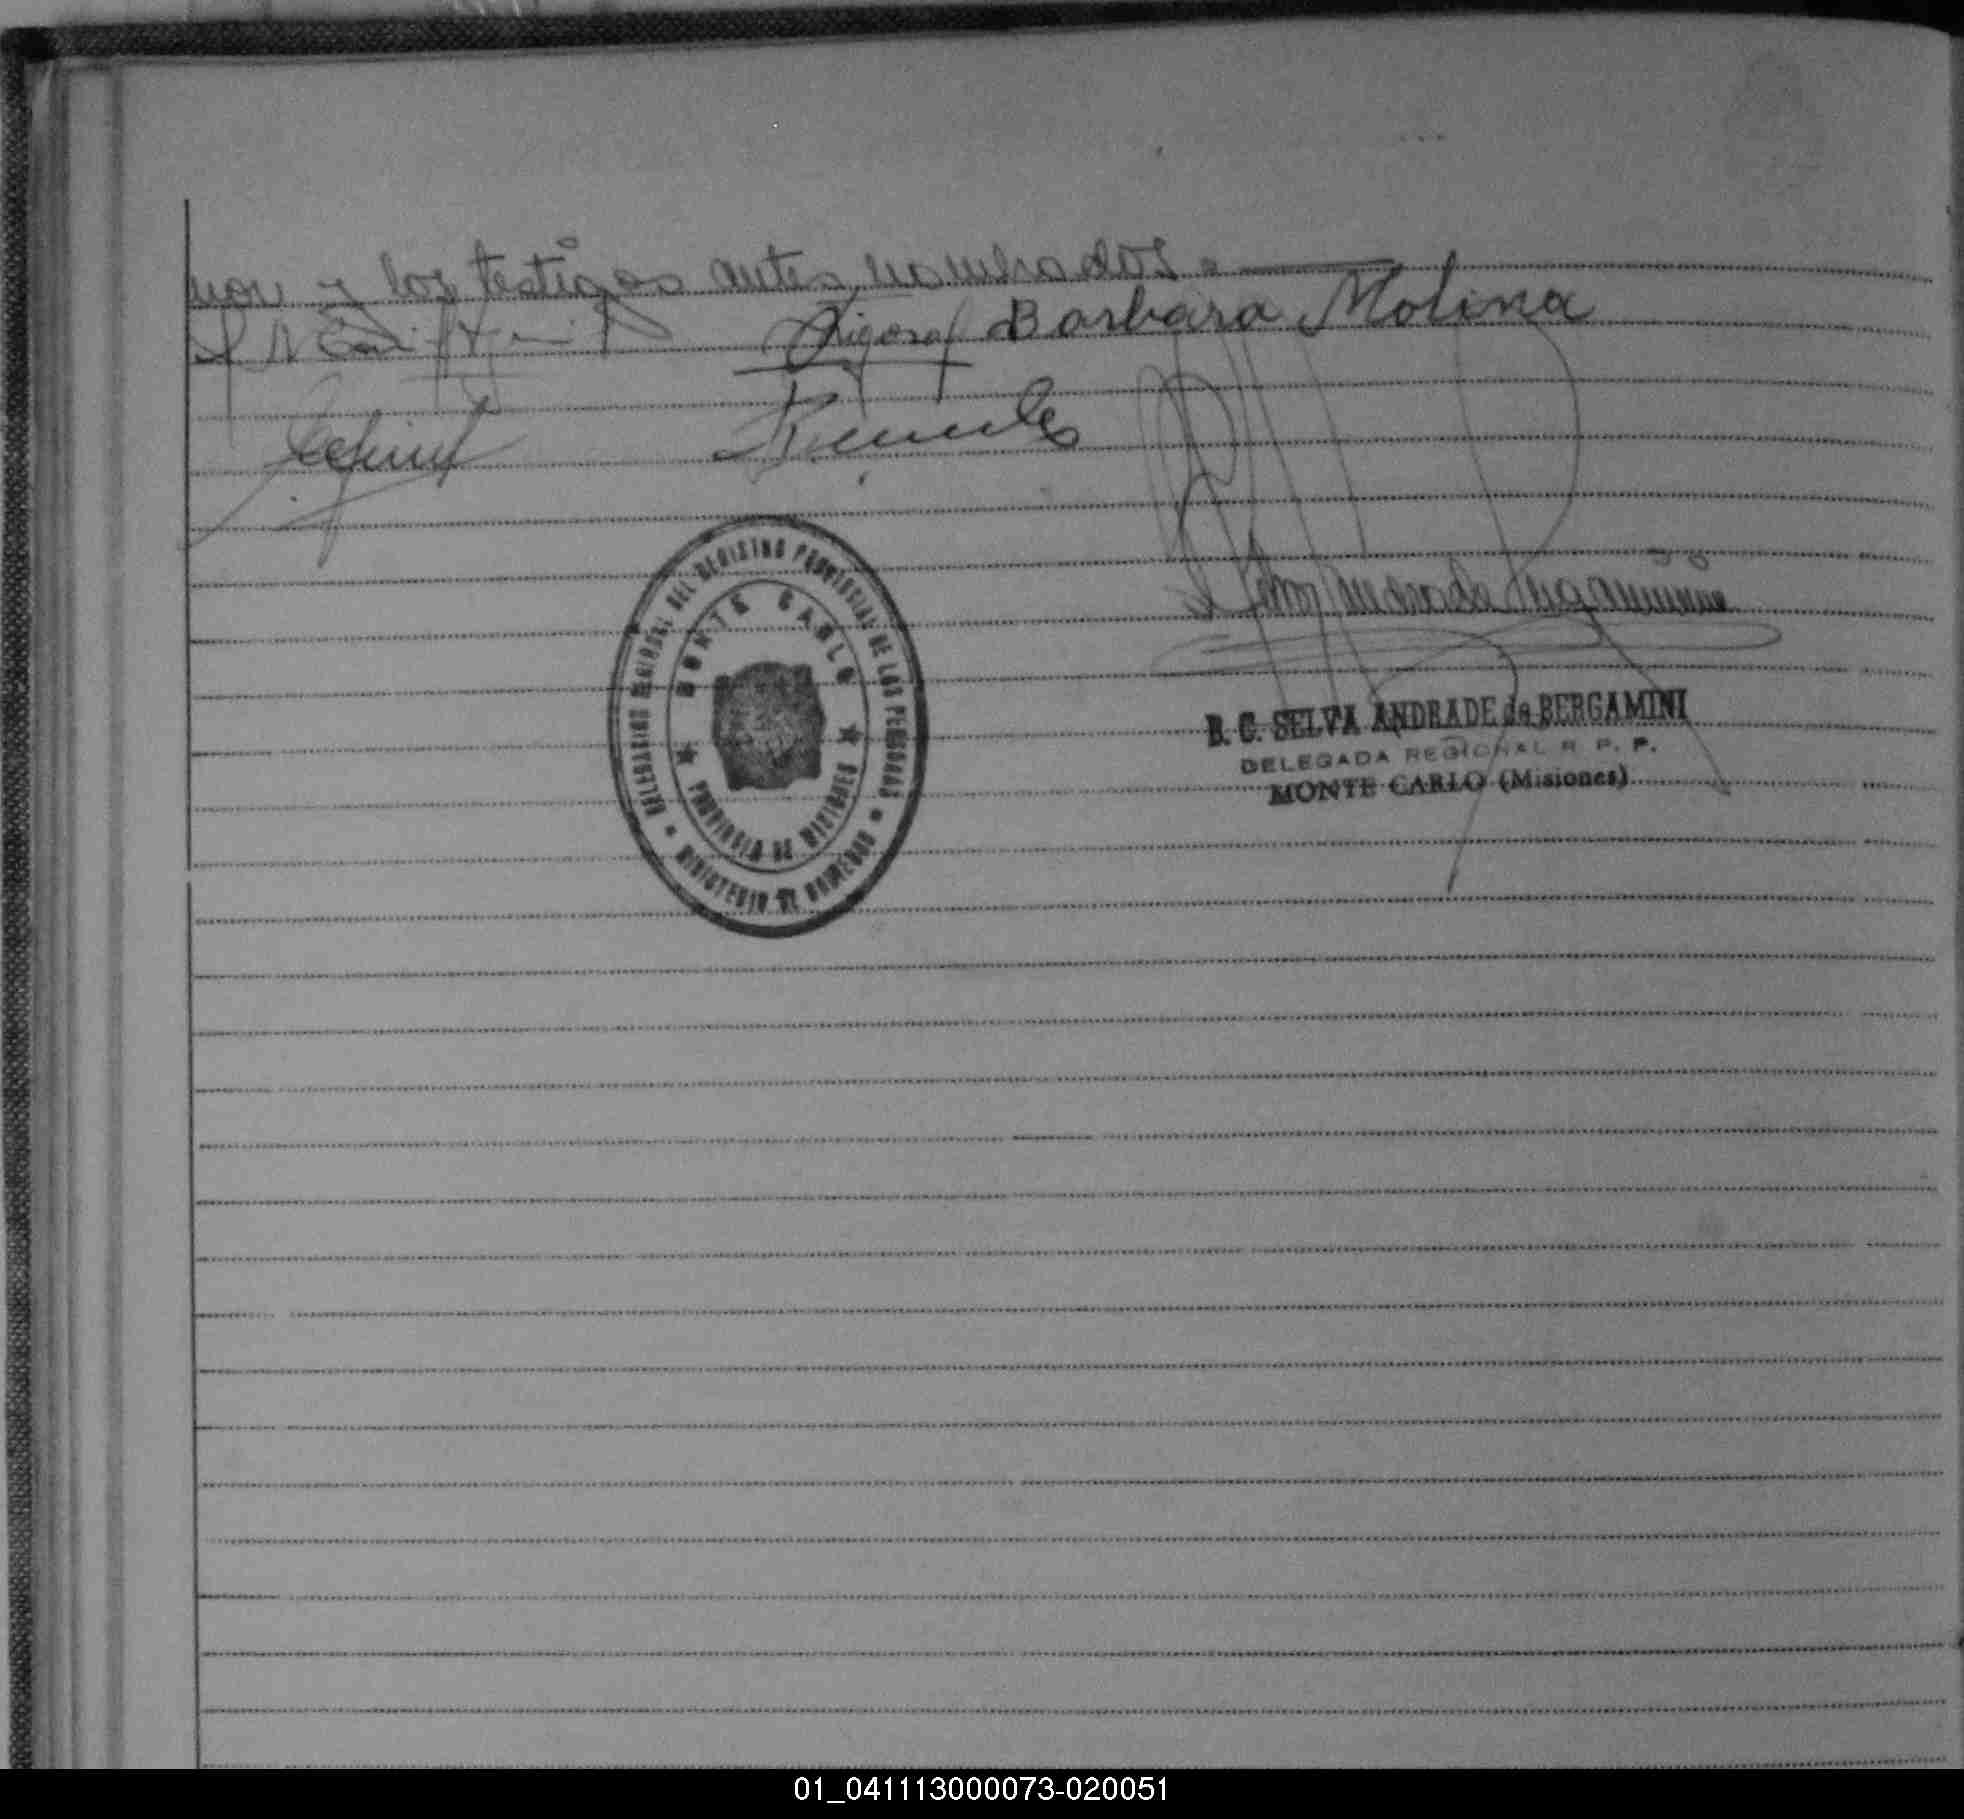 nor y los testigos antes nombrados.
Barbara Molina
DELEGACION REGIONAL DEL REGISTRO PROVINCIAL DE LAS PERSONAS
MONTE CARLO
PROVINCIA DE MISIONES
MINISTERIO DE GOBIERNO
Selva Andrade Bergamini
B. C. SELVA ANDRADE de BERGAMINI
DELEGADA REGIONAL R. P. P.
MONTE CARLO (Misiones)
01_041113000073-020051